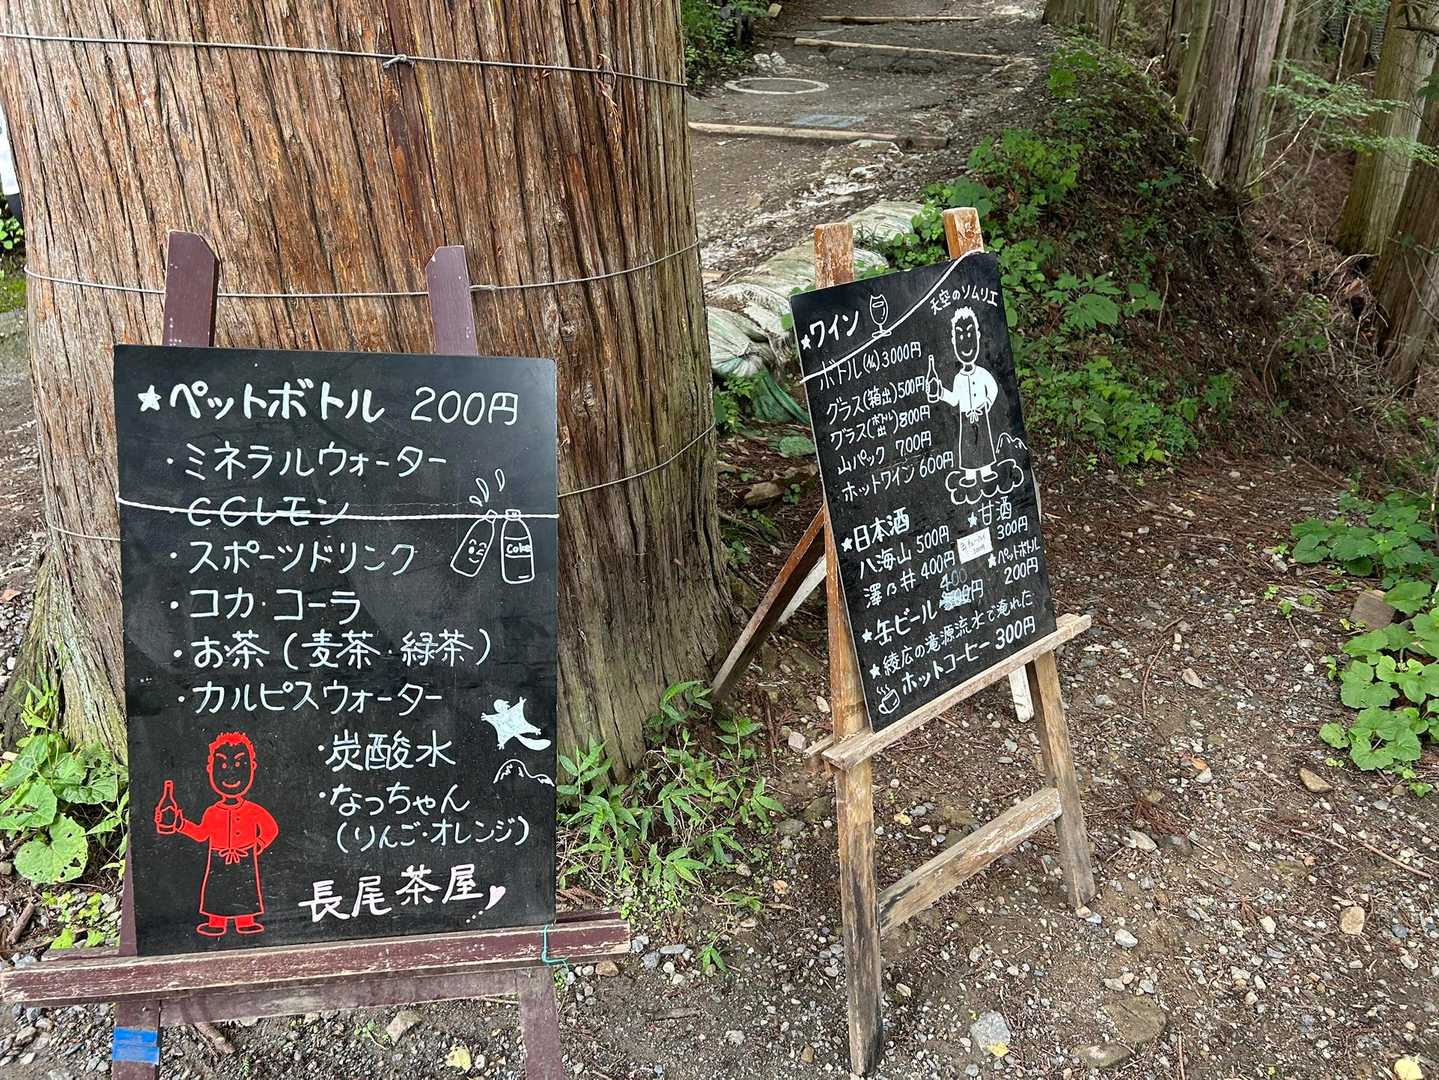 ★ペットボトル 200円
・ミネラルウォーター
・CCレモン
・スポーツドリンク
・コカ・コーラ
・お茶(麦茶・緑茶)
・カルピスウォーター
・炭酸水
・なっちゃん
(りんご・オレンジ)
長尾茶屋
Coke
天空のソムリエ
★ワイン
ボトル(仏)3000円
グラス(箱出)500円
グラス(ボトル出)800円
山パック 700円
ホットワイン 600円
★日本酒
八海山 500円
澤乃井 400円
★甘酒
300円
★ペットボトル
200円
★缶ビール 400円
★綾広の滝源流水で淹れた
ホットコーヒー 300円